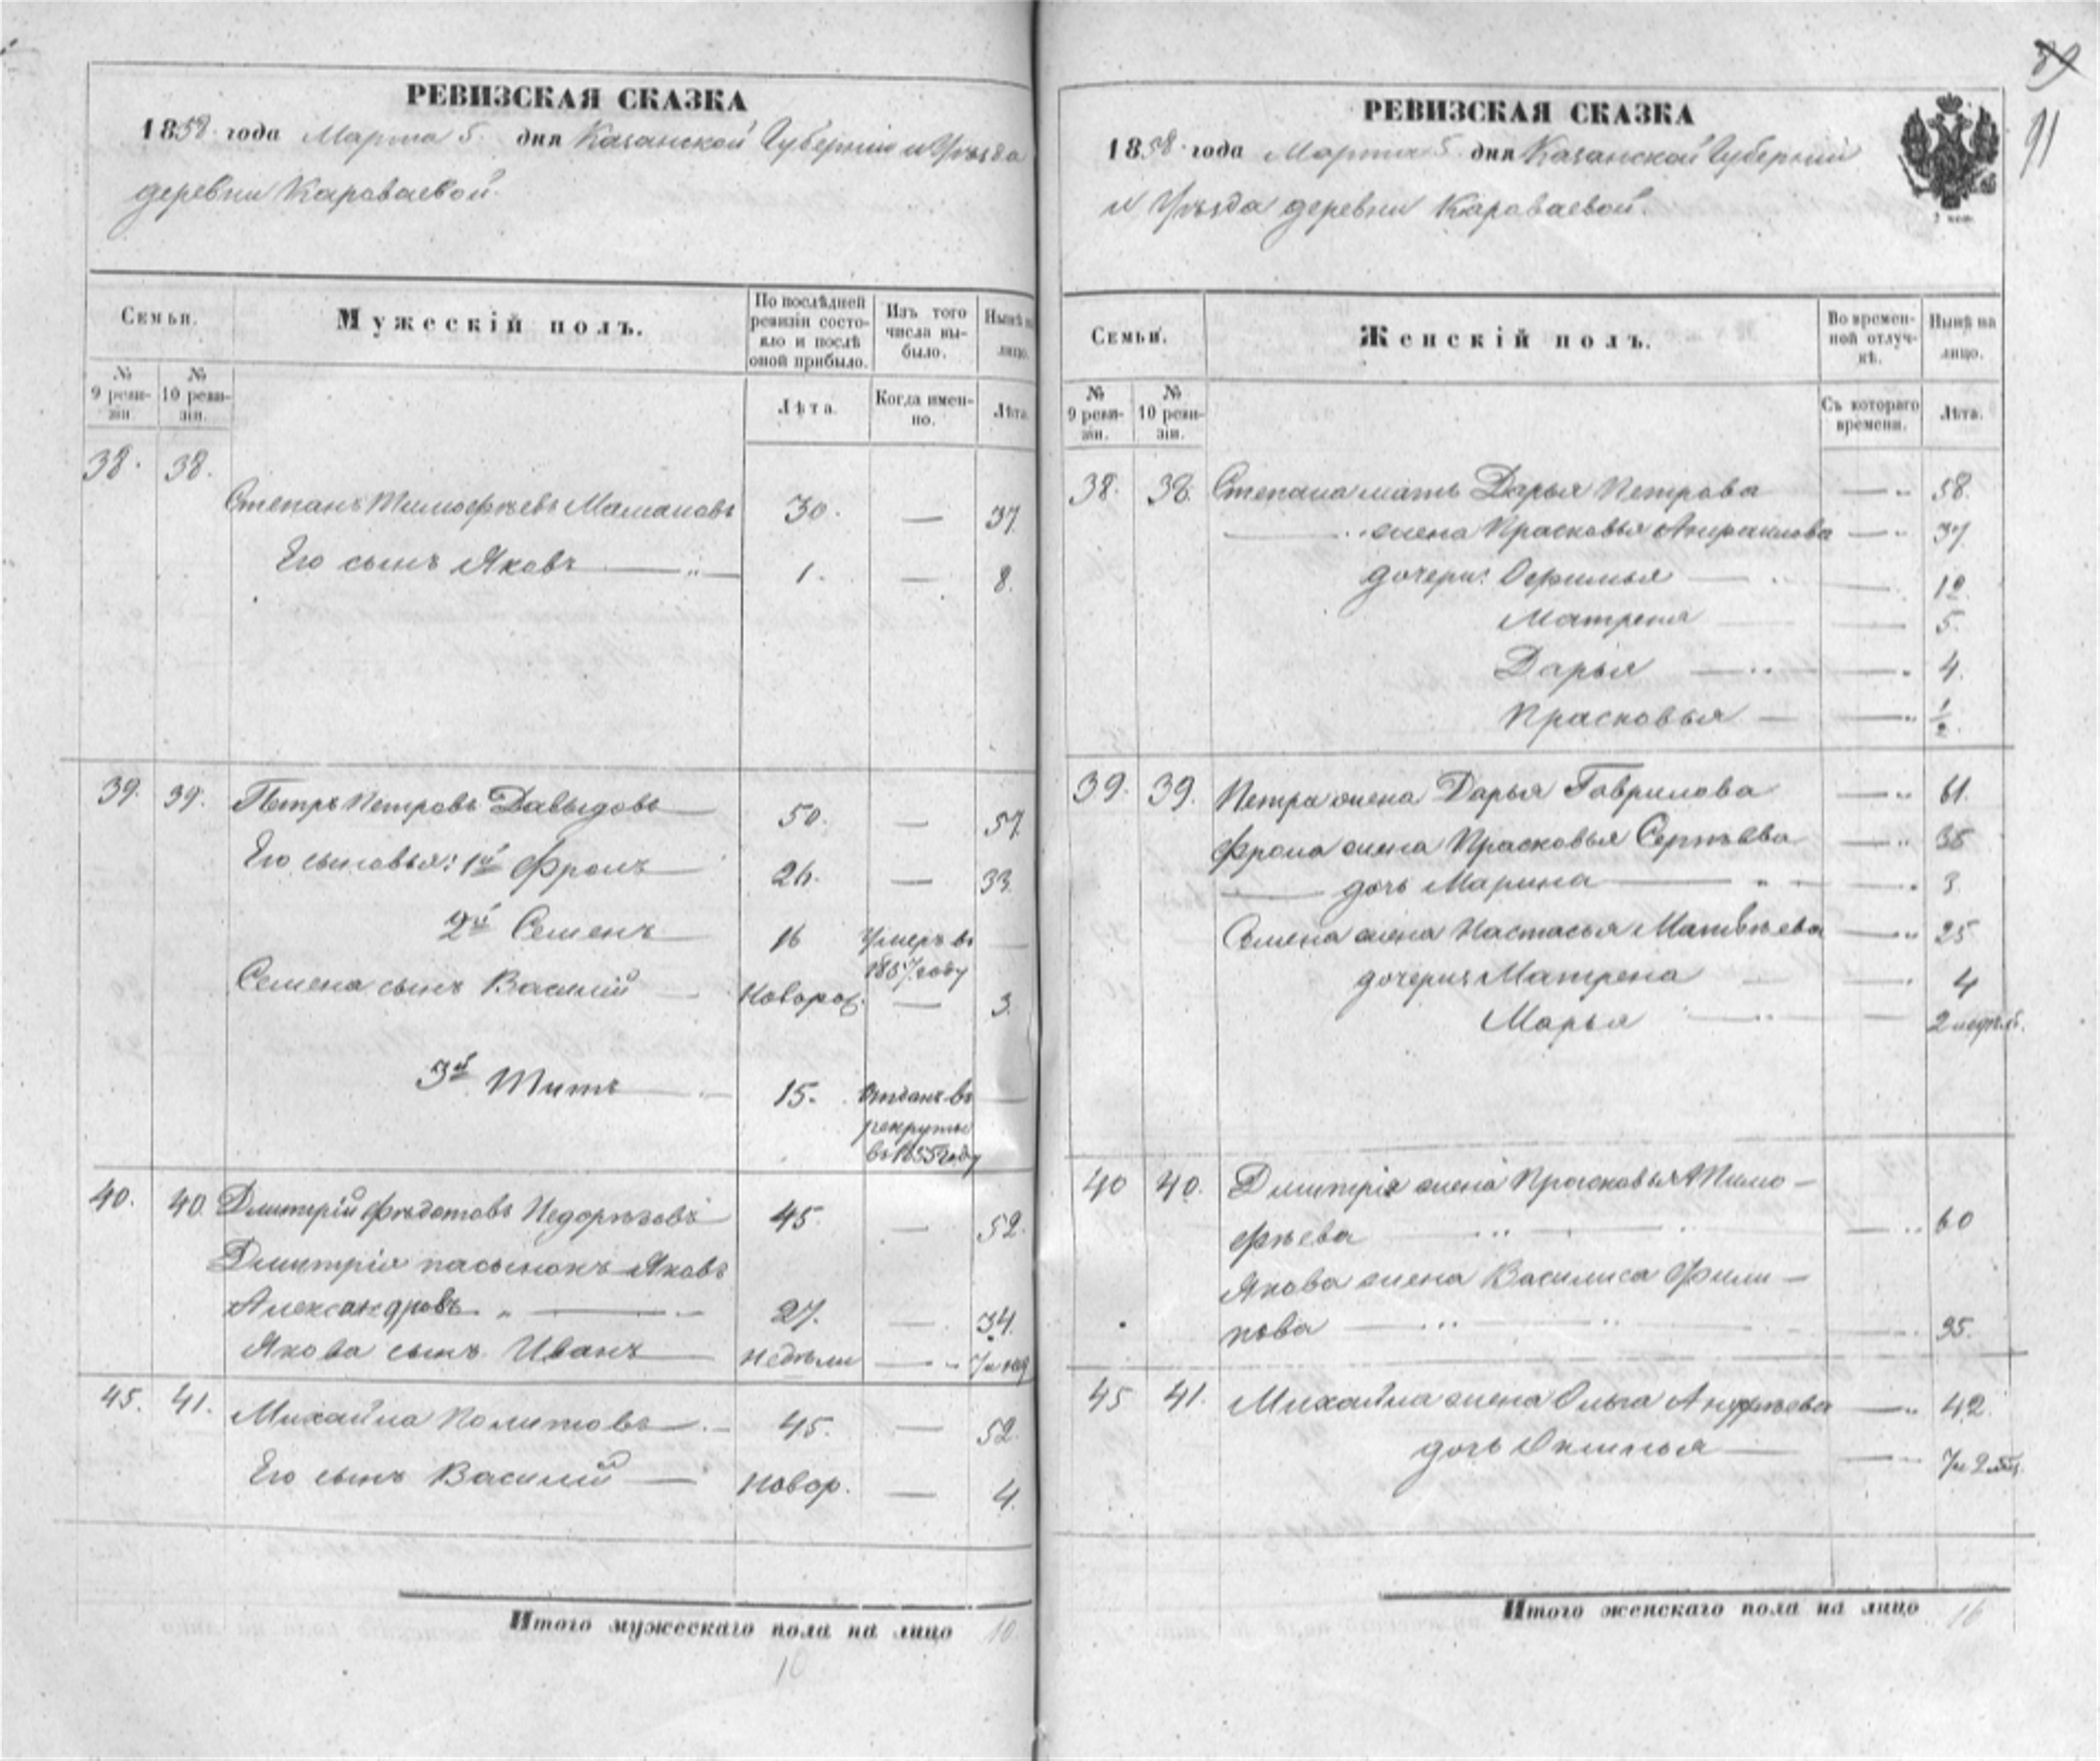 РЕВИЗСКАЯ СКАЗКА
1858 года Марта 5 дня Казанской Губернии и Уѣзда
деревни Караваевой.
Семьи.
Мужескій полъ.
По послѣдней ревизіи состояло и послѣ оной прибыло.
Изъ того числа выбыло.
Нынѣ на лицо.
№ 9 ревизіи.
№ 10 ревизіи.
Лѣта.
Когда именно.
Лѣта.
38. 38.
Степанъ Тимофѣевъ 30. — 37.
Его сынъ Яковъ — 1. — 8.
39. 39. Петръ Петровъ Давыдовъ 50. — 57.
Его сыновья: 1й Фролъ 26. — 33.
2й Семенъ 16 Умеръ въ —
1857 году
Семена сынъ Василій — Новорож. — 3.
3й Титъ 15. Отданъ въ —
рекруты
въ 1855 году
40. 40. Дмитрій Ѳедотовъ 45. — 52.
Дмитрія пасынокъ Яковъ
Александровъ 27. — 34.
Якова сынъ Иванъ недѣли —
45. 41. Михайла 45. — 52.
Его сынъ Василій — Новор. — 4.
Итого мужескаго пола на лицо 10
10
39
91
РЕВИЗСКАЯ СКАЗКА
1858 года Марта 5 дня Казанской Губерніи
и Уѣзда деревни Караваевой.
Семьи.
Женскій полъ.
Во временной отлучкѣ.
Нынѣ на лицо.
№ 9 ревизіи.
№ 10 ревизіи.
Съ котораго времени.
Лѣта.
38. 38. Степана мать Дарья Петрова — 58.
— жена Прасковья — 37
дочери: Офимья — 12.
Матрена — 5.
Дарья — 4.
Прасковья — ½.
39. 39. Петра жена Дарья Гаврилова — 61.
Фрола жена Прасковья Сергѣева —
— дочь Марина — 3.
Семена жена Настасья Матвѣева — 25
дочери: Матрена — 4
Марья — 2 недѣль.
40 40. Дмитрія жена Прасковья Тимо-
фѣева — 60
Якова жена Василиса Фили-
пова — 35.
45 41. Михайла жена Ольга Андреева — 42.
дочь Акилина —
Итого женскаго пола на лицо 16